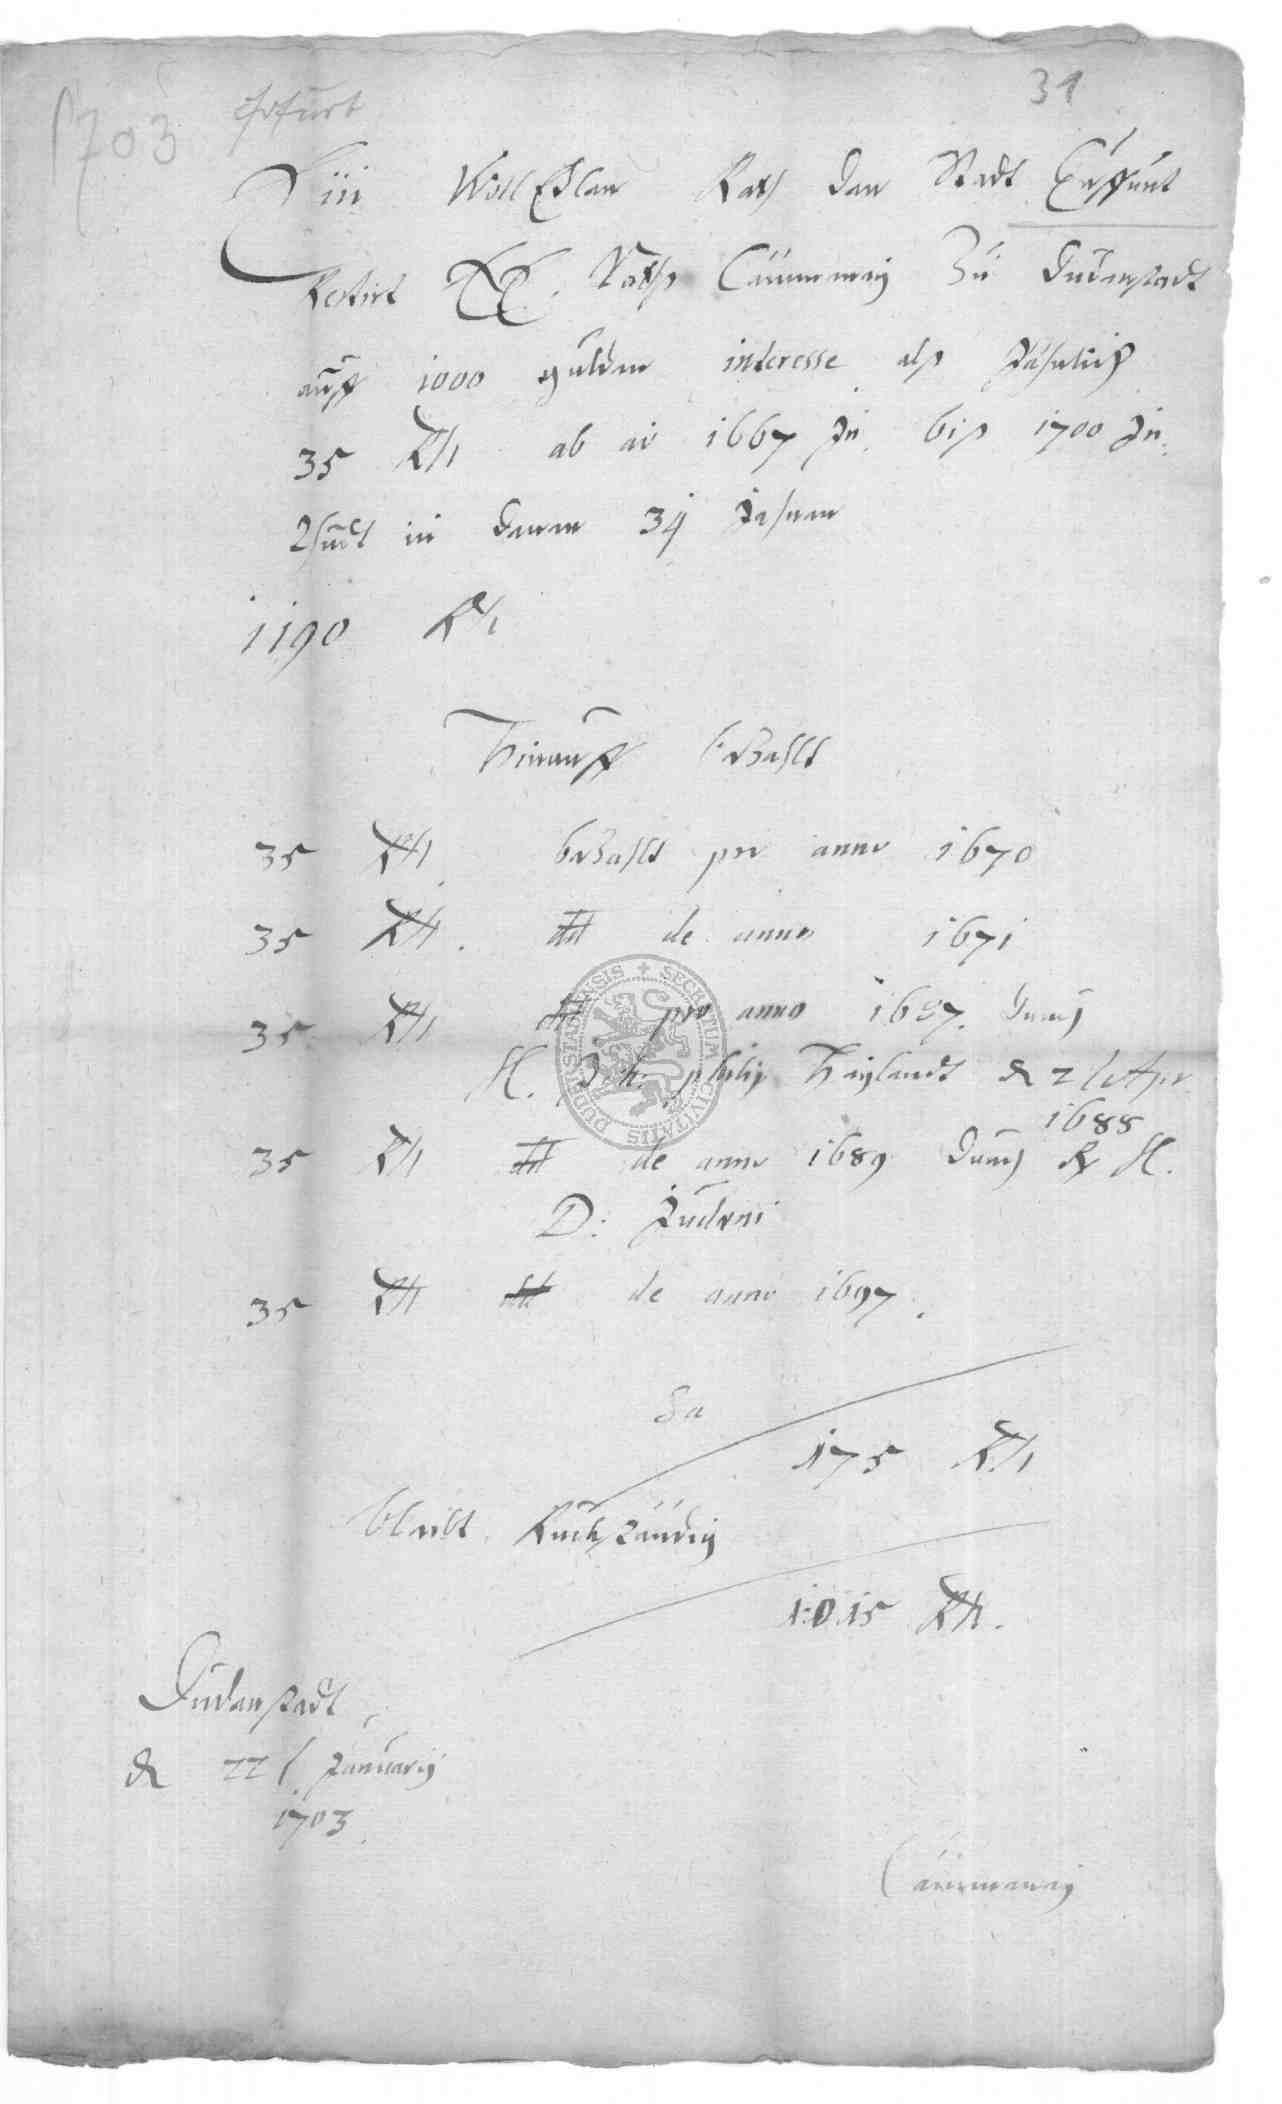 1703 Erfurt
31
Ein WollEdler Rath der Stadt Erffurt
Restirt EE. Raths Cämmerey zu Duderstadt
auff 1000 gulden interesse alß Jährlich
35 Rth ab ao 1667 in. biß 1700 in.
thudt in denen 34 Jahren
1190 Rth
Hirauff bezahlt
35 Rth bezahlt pro anno 1670
35 Rth. dtt de anno 1671
35 Rth dtt pro anno 1687. durch
H. philip Heylandt d 2 t Apr
1688
35 Rth dtt de anno 1689 durch H.
D:
35 Rth dtt de anno 1697.
Sa
175 Rth
bleibt Rückständig
1015 Rth.
Duderstadt
d 22 t Januarij
1703.
Cämmerey
SECRETUM CIVITATIS DUDERSTADENSIS